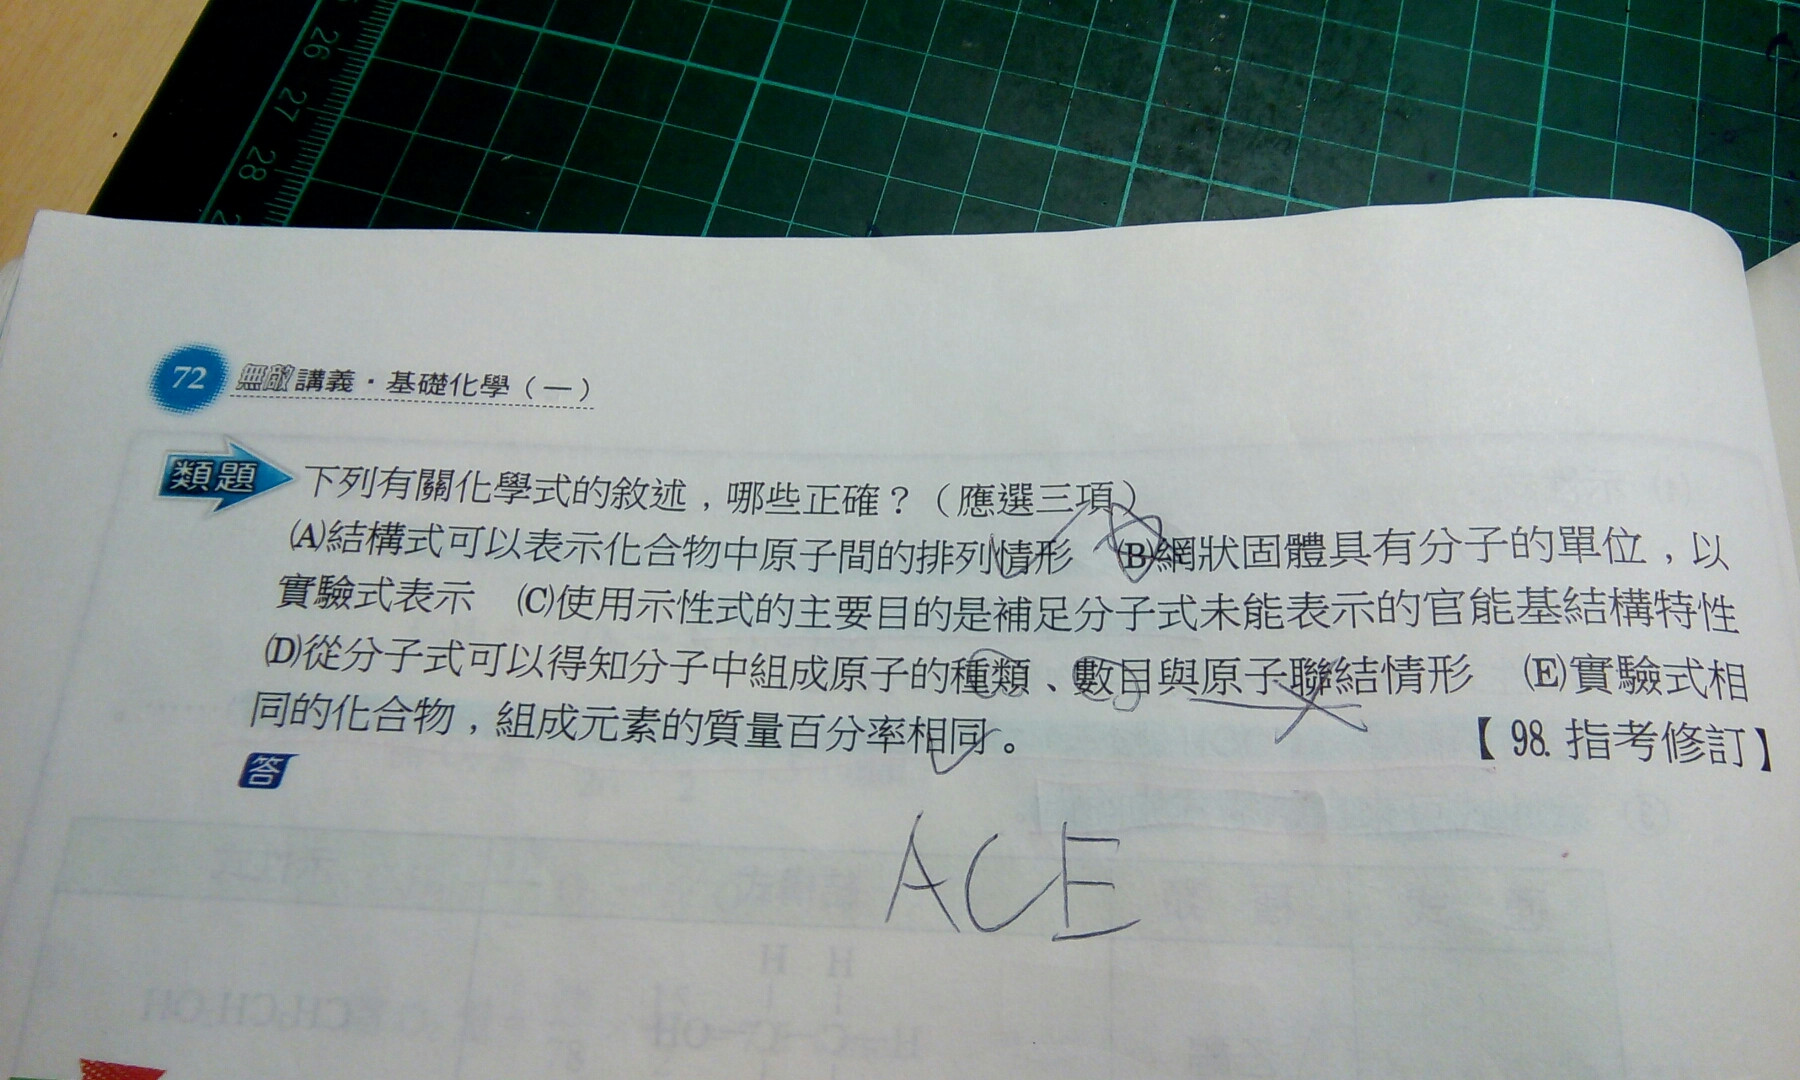 26
27
28
72 無敵講義·基礎化學(一)
類題 下列有關化學式的敘述，哪些正確？（應選三項）
(A)結構式可以表示化合物中原子間的排列情形 (B)網狀固體具有分子的單位，以
實驗式表示 (C)使用示性式的主要目的是補足分子式未能表示的官能基結構特性
(D)從分子式可以得知分子中組成原子的種類、數目與原子聯結情形 (E)實驗式相
同的化合物，組成元素的質量百分率相同。 【98. 指考修訂】
答
ACE